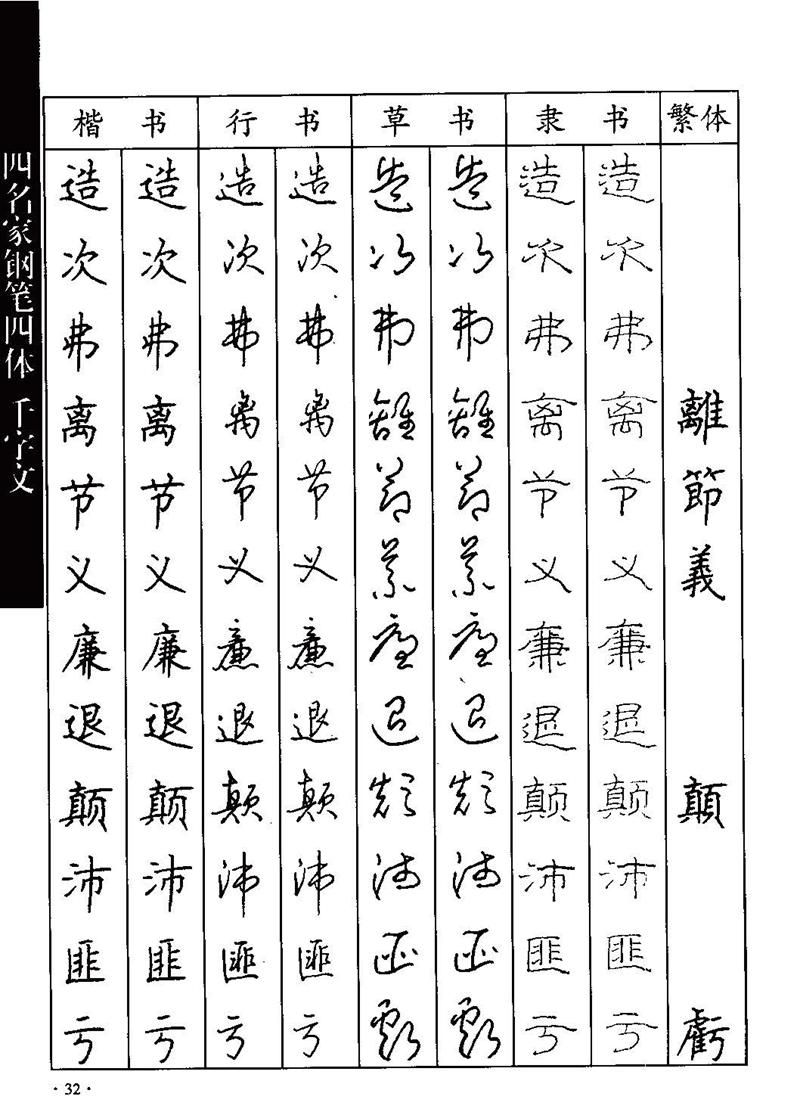 四名家钢笔四体 千字文
楷书 行书 草书 隶书 繁体
造 造 造 造 造 造 造 造
次 次 次 次 次 次 次 次
弗 弗 弗 弗 弗 弗 弗 弗
离 离 离 离 離 離 离 离 離
节 节 节 节 節 節 节 节 節
义 义 义 义 義 義 义 义 義
廉 廉 廉 廉 廉 廉 廉 廉
退 退 退 退 退 退 退 退
颠 颠 颠 颠 顛 顛 颠 颠 顛
沛 沛 沛 沛 沛 沛 沛 沛
匪 匪 匪 匪 匪 匪 匪 匪
亏 亏 亏 亏 虧 虧 亏 亏 虧
·32·